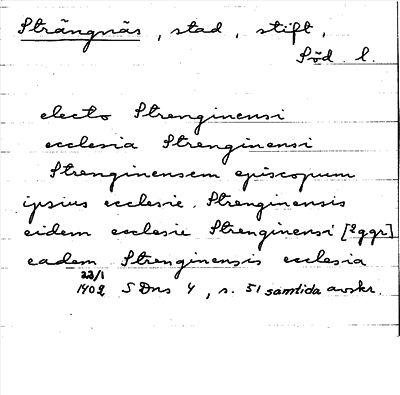 Strängnäs, stad, stift,
Söd. l.
electo Strenginensi
ecclesia Strenginensi
Strenginensem episcopum
ipsius ecclesie. Strenginensis
eidem ecclesie Strenginensi [2ggr]
eadem Strenginensis ecclesia
22/1
1402 SDns 4, s. 51 samtida avskr.